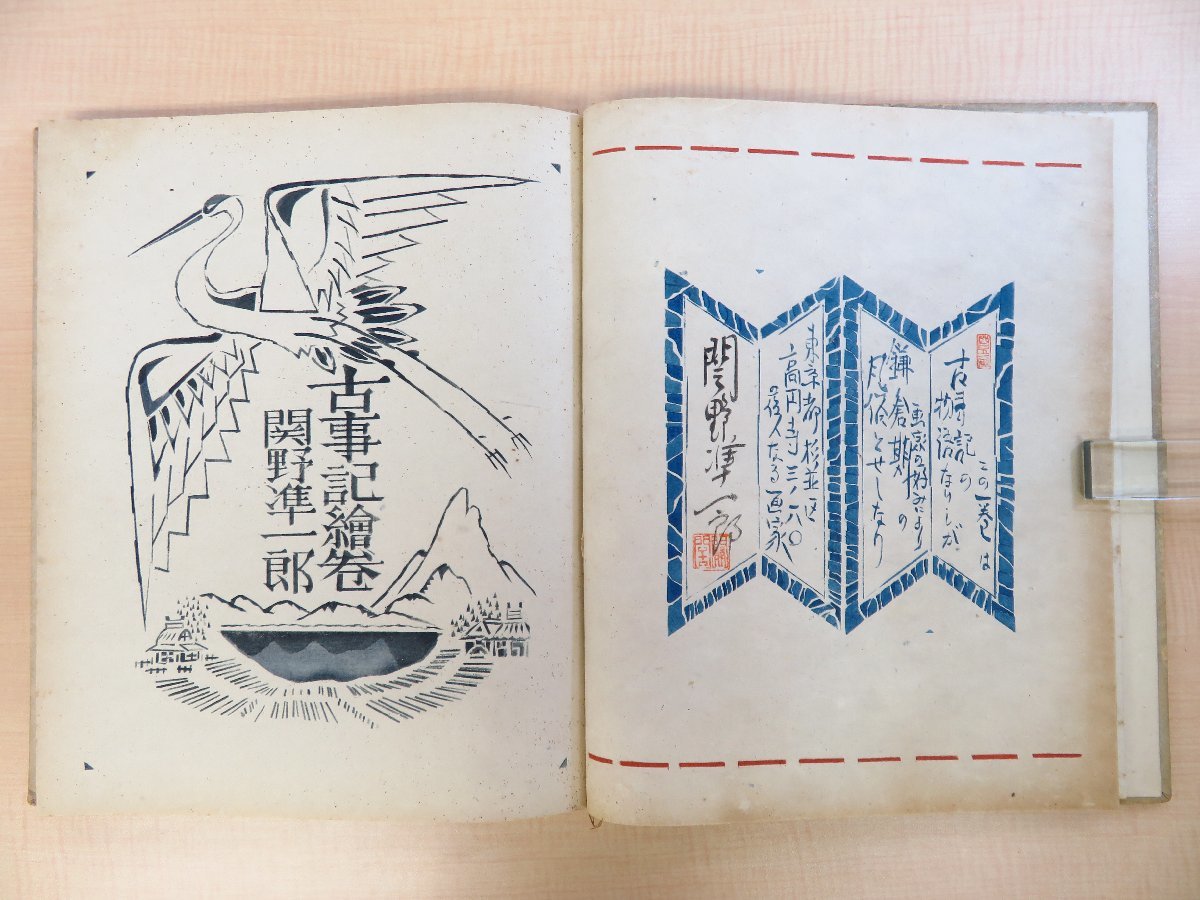 古事記繪巻
関野凖一郎
この一巻は
古事記の
物語なりしが
画家の好みにより
鎌倉期の
風俗とせしなり
東京都杉並区
高円寺三ノ一八〇
の住人なる画家
関野凖一郎